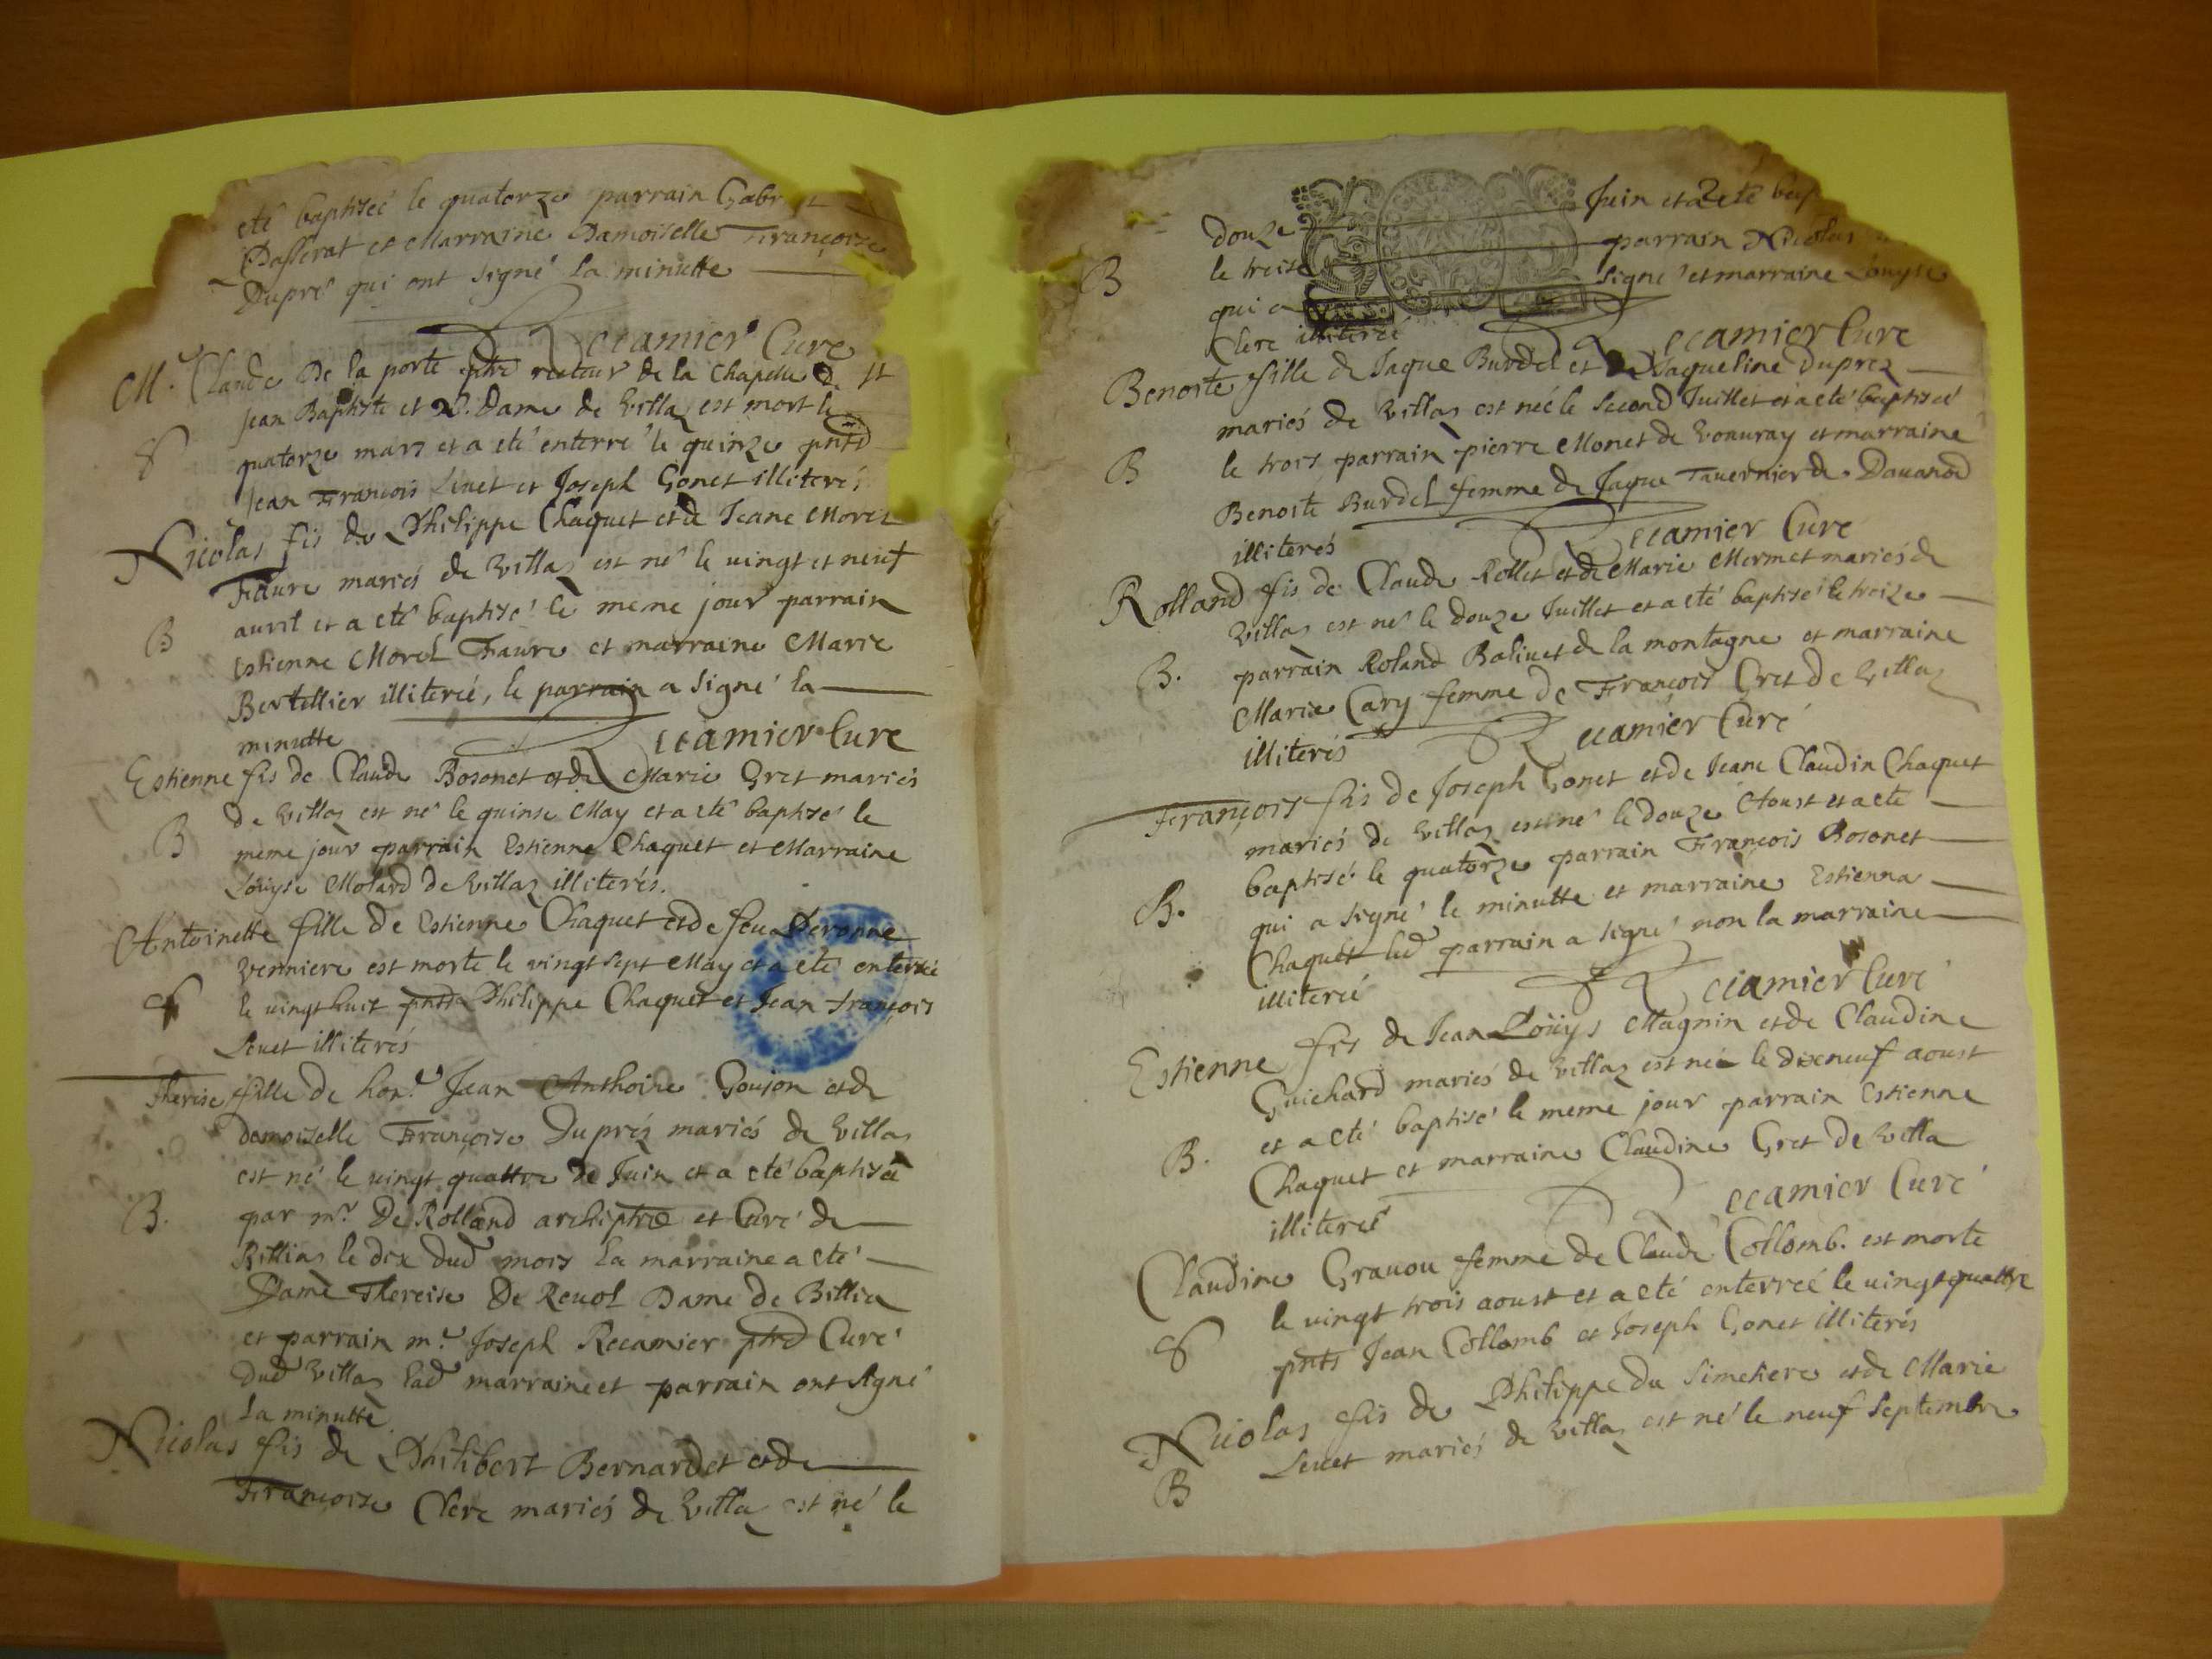 eté baptiseé le quatorze parrain Gabr
Passerat et Marraine Damoiselle Françoise
Dupré qui ont signé la minutte
Recamier Curé
Mr. Claude De la porte ptre recteur de la Chapelle de St
Jean Baptiste et N. Dame de Villaz est mort le
S quatorze mars et a eté enterré le quinze pnts
Jean François Livet et Joseph Gonet illiterés
Nicolas fis de Philippe Chaquet et de Jeane Morel
Faure mariés de Villaz est né le vingt et neuf
auril et a eté baptisé le meme jour parrain
B Estienne Morel Faure et marraine Marie
Bertellier illiterée, le parrain a signé la
minutte Recamier Curé
Estienne fis de Claude Bosonet et de Marie Gret mariés
de Villaz est né le quinse May et a eté baptisé le
B meme jour parrain Estienne Chaquet et Marraine
Louyse Molard de Villaz illiterés.
Antoinette fille de Estienne Chaquet et de feu Peronne
Verniere est morte le vingt sept May et a eté enterrée
S le vingt huit pnts Philippe Chaquet et Jean françois
Livet illiterés
Therise fille de honle Jean Anthoine Goujon et de
demoiselle Françoise Duprés mariés de Villaz
est né le vingt quattre de Juin et a eté baptisée
B. par mr. De Rolland archiptre et Curé de
Billiaz le dix dud mois la marraine a eté
Dame Thereise De Reuol Dame de Billia
et parrain mr. Joseph Recamier ptre Curé
dud Villaz lad marraine et parrain ont signé
la minutte
Nicolas fis de Philibert Bernardet et de
Françoise Clere mariés de Villaz est né le
douze Juin et a eté bap
B le treise parrain Nicolas
qui a signé et marraine Louyse
Clere illiteré
Recamier Curé
Benoite fille de Jaque Burdel et de Jaqueline Duprez
mariés de Villaz est neé le second Juillet et a eté baptiseé
B le trois parrain pierre Monet de Vouuray et marraine
Benoite Burdel femme de Jaque Tauernier de Dauanod
illiterés Recamier Curé
Rolland fis de Claude Rollet et de Marie Mermet mariés de
Villaz est né le douze Juillet et a eté baptisé le treize
B. parrain Roland Baliuet de la montagne et marraine
Marie Cary femme de François Gret de Villaz
illiterés Recamier Curé
François fis de Joseph Gonet et de Jeane Claudin Chaquet
mariés de Villaz est né le douze Aoust et a eté
baptisé le quatorze parrain François Bosonet
B. qui a signé le minutte et marraine Estienna
Chaquet led parrain a signé non la marraine
illiterée Recamier Curé
Estienne fis de Jean Louys Magnin et de Claudine
Guichard mariés de Villaz est né le dixneuf aoust
et a eté baptisé le meme jour parrain Estienne
B. Chaquet et marraine Claudine Gret de Villa
illiterés Recamier Curé
Claudine Grauou femme de Claude Collomb. est morte
le vingt trois aoust et a eté enterreé le uingt quattre
S pnts Jean Collomb et Joseph Gonet illiterés
Nicolas fis de Philippe du Simetiere et de Marie
B Livet mariés de Villaz est né le neuf Septembre